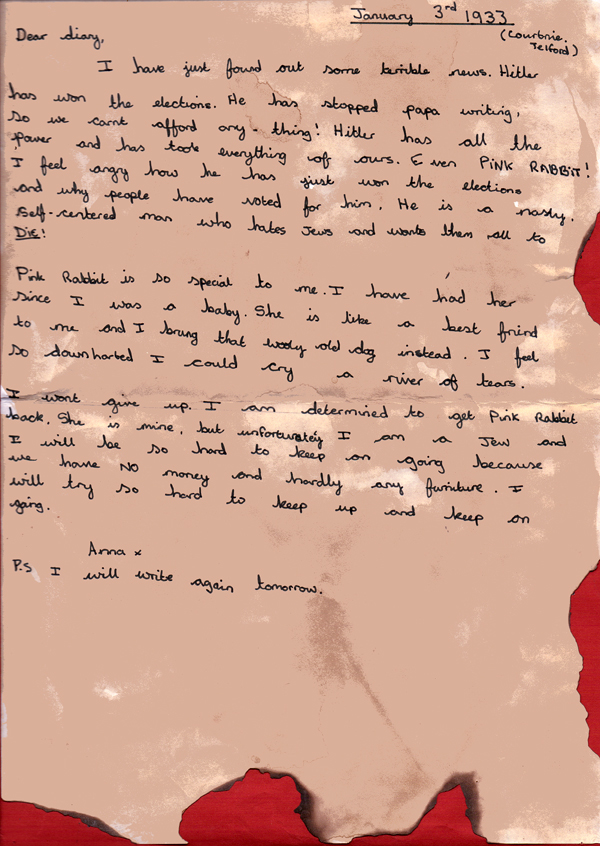 January 3rd 1933
(Courtnie.
Telford)
Dear diary,
I have just found out some terrible news. Hitler
has won the elections. He has stopped papa writing,
so we carnt afford any-thing! Hitler has all the
power and has took everything of ours. Even PiNK RABBiT!
I feel angry how he has just won the elections
and why people have voted for him. He is a nasty.
Self-centered man who hates Jews and wants them all to
DiE!
Pink Rabbit is so special to me. I have had her
since I was a baby. She is like a best frind
to me and I brung that wooly old dog instead. I feel
so downharted I could cry a river of tears.
I wont give up. I am determined to get Pink Rabbit
back. She is mine, but unfortunatey I am a Jew and
I will be so hard to keep on going because
we have NO money and hardly any furniture. I
will try so hard to keep up and keep on
going.
Anna x
P.S I will write again tomorrow.